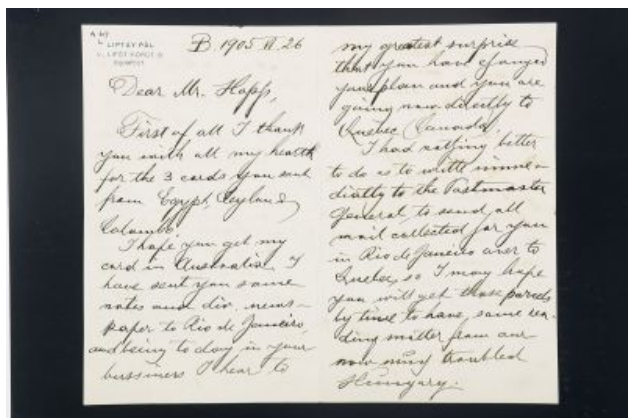 LIPTAY PÁL
B. 1905 VI. 26
Dear Mr. Hopp,
First of all I thank
you with all my hearth
for the 3 cards you sent
from Egypt, Ceylan &
Colombo.
I hope you get my
card in Australia. I
have sent you some
notes and div. news-
paper to Rio de Janeiro,
and being to day in your
bussiness I hear to
my greatest surprise
that you have changed
your plan and you are
going now directly to
Quebec Canada.
I had nothing better
to do as to write imme-
diatly to the Postmaster
General to send all
mail collected for you
in Rio de Janeiro over to
Quebec, so I may hope
you will get those parcels
by time to have some rea-
ding matter from our
now much troubled
Hungary.